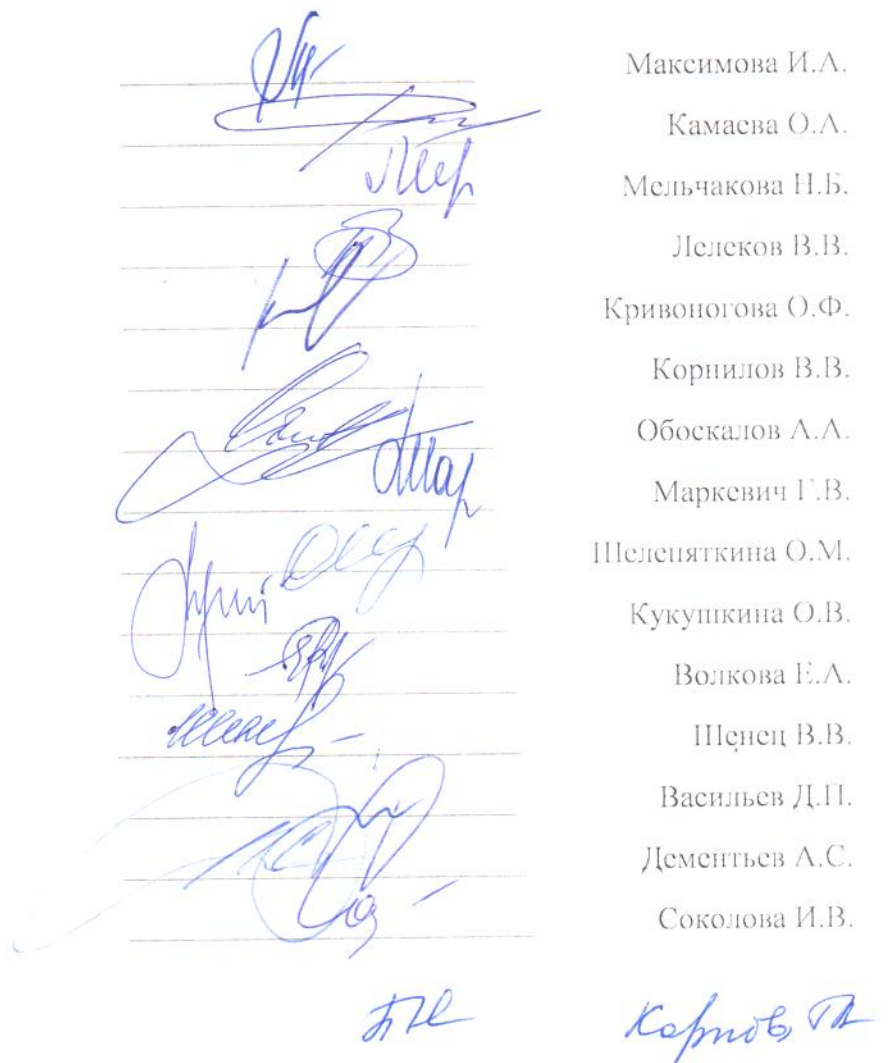 Максимова И.А.
Камаева О.А.
Мельчакова Н.Б.
Лелеков В.В.
Кривоногова О.Ф.
Корнилов В.В.
Обоскалов А.А.
Маркевич Г.В.
Шелепяткина О.М.
Кукушкина О.В.
Волкова Е.А.
Шенец В.В.
Васильев Д.П.
Дементьев А.С.
Соколова И.В.
Карпов